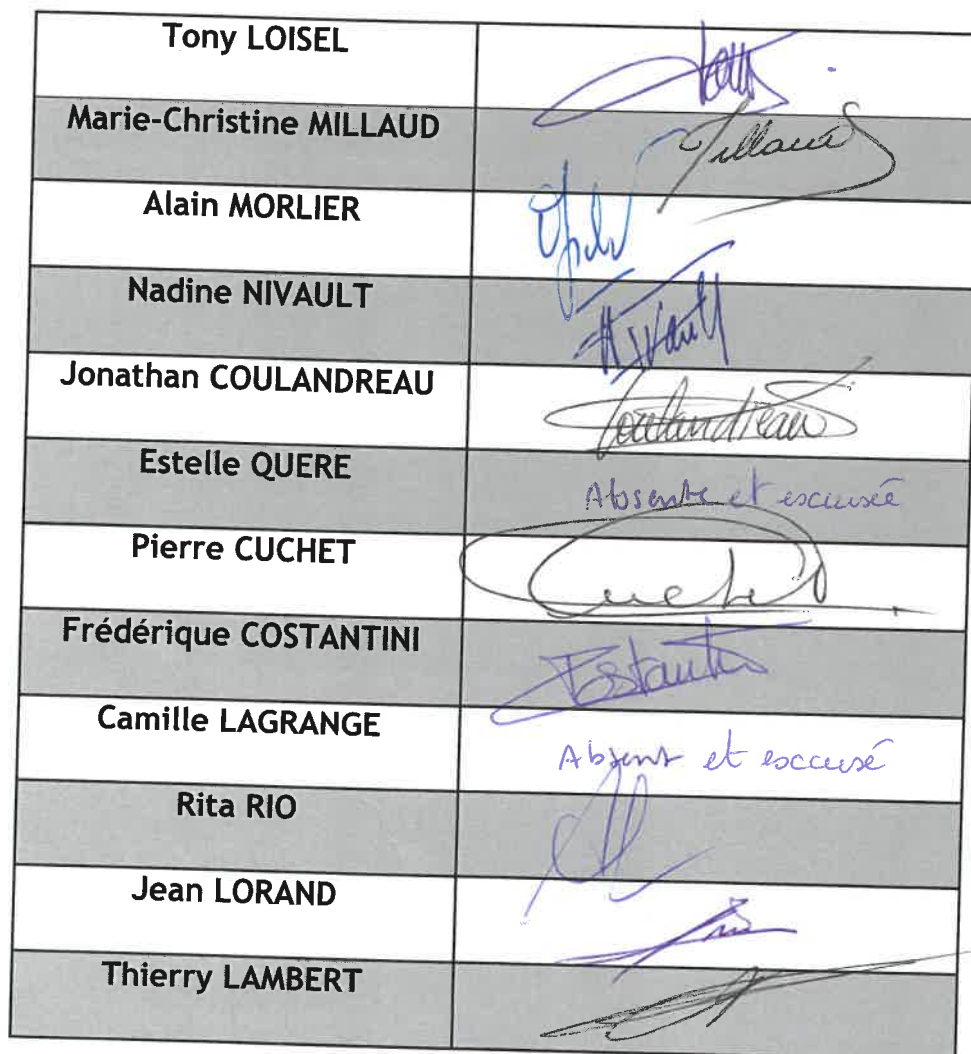 Tony LOISEL
Marie-Christine MILLAUD
Millaud
Alain MORLIER
Nadine NIVAULT
Nivault
Jonathan COULANDREAU
Coulandreau
Estelle QUERE
Absente et excusée
Pierre CUCHET
Cuchet
Frédérique COSTANTINI
Costantini
Camille LAGRANGE
Absent et excusé
Rita RIO
Jean LORAND
Thierry LAMBERT